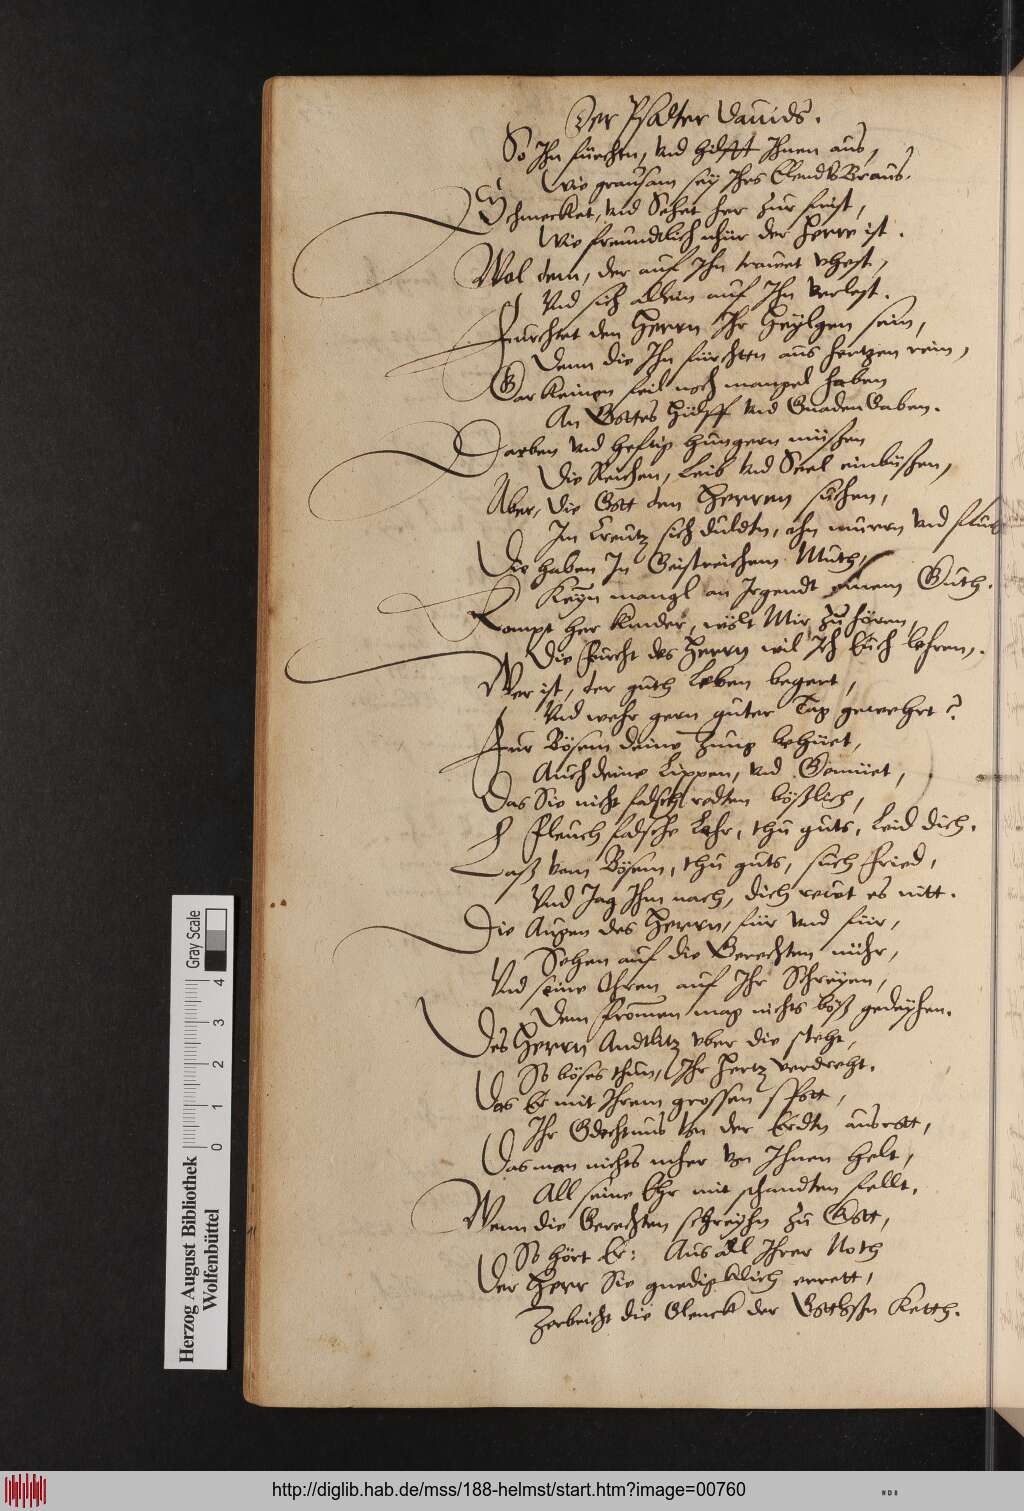 Der Psalter Dauids.
So Ihn fürchtn, vnd hilfft Ihnen aus,
Wie grausam sey Ihrs Elendts Braus.
Schmecket, vnd Sehet her zur frist,
Wie freundtlich nhür der Herre ist.
Wol dem, der auf Ihn trawet vhest,
Vnd sich allein auf Ihn verlest.
Furchtet den Herrn Ihr Heylgen sein,
Denn die Ihn fürchten aus hertzen rein,
Gar keinen feil noch mangel haben
An Gottes Hülff vnd Gnaden Gaben.
Darben vnd hefftig hungern müssen
Die Reichen, Leib vnd Seel einbüssen,
Aber, die Gott den Herren suchen,
Im Creutz sich duldtn, ohn murrn vnd fluchen
Die haben In Geistreichem Muth,
Keyn mangl an Irgendt einem Guth.
Kompt her Kinder, wolt Mir zu hören,
Die Furcht des Herrn wil Ich Euch lehren.
Wer ist, der guth Leben begert,
Vnd wehr gern guter Tag gewehrt?
Fur Bösem deine Zung behüet,
Auch deine Lippen, vnd Gemüet,
Das Sie nicht falsch redten bößlich,
Fleuch falsche Lehr, thu guts, leid dich.
Laß vom Bösem, thu guts, such Fried,
Vnd Jag Ihm nach, dich rewt es nitt.
Die Augen des Herrn, für vnd für,
Sehen auf die Gerechten nühr,
Vnd seine Ohren auf Ihr Schreyen,
Dem fromen mag nichts böß gedeyhen.
Des Herrn Andtlitz vber die steht,
So böses thun, Ihr Hertz verdreht.
Das Er mit Ihrem grossen Spott,
Ihr Gdechtnus von der Erdtn ausrott,
Das man nichts mher von Ihnen helt,
All seine Ehr mit schandten fellt.
Wenn die Gerechten schreyhn zu Gott,
So hört Er: Aus all Ihrer Noth
Der Herr Sie gnediglich errett,
Zerbricht die Glenck der Gottlosn Keth.
Herzog August Bibliothek
Wolfenbüttel
0 1 2 3 4
Gray Scale
http://diglib.hab.de/mss/188-helmst/start.htm?image=00760